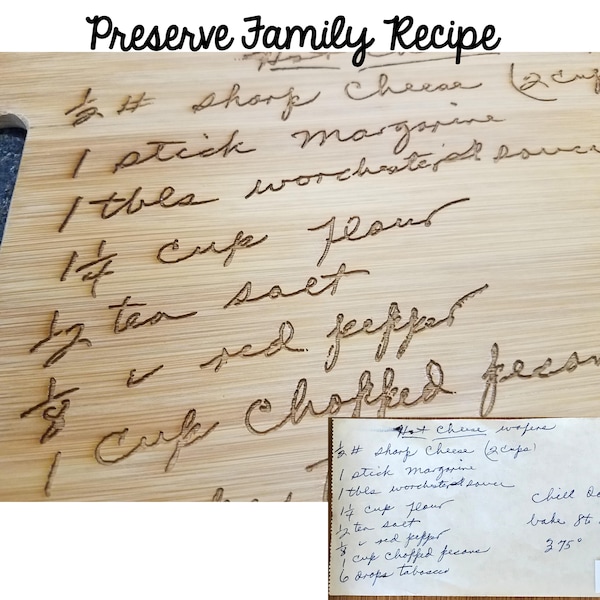 Preserve Family Recipe
½ # sharp cheese (2 cup
1 stick margarine
1 tbls worchestersh sauce
1¼ cup flour
½ tea salt
⅛ " red pepper
1 cup chopped pecans
Hot Cheese wafers
½ # sharp cheese (2 cups)
1 stick margarine
1 tbls worchestersh sauce
1¼ cup flour
½ tea salt
⅛ " red pepper
1 cup chopped pecans
6 drops tabasco
Chill
bake 8 to
375°